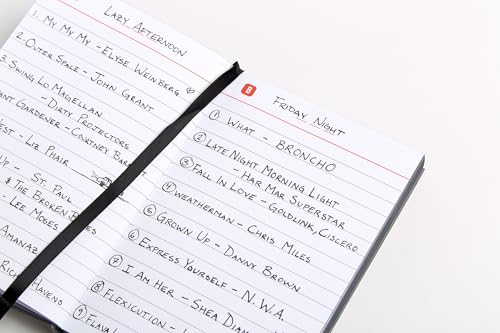 LAZY AFTERNOON
1. MY MY MY - ELYSE WEINBERG
2. OUTER SPACE - JOHN GRANT
3. SWING LO MAGELLAN
- DIRTY PROJECTORS
GARDENER - COURTNEY
- LIZ PHAIR
UP - ST. PAUL
& THE BROKEN
- LEE MOSES
RICHIE HAVENS
8
FRIDAY NIGHT
1 WHAT - BRONCHO
2 LATE NIGHT MORNING LIGHT
- HAR MAR SUPERSTAR
3 FALL IN LOVE - GOLDLINK, CISCERO
4 WEATHERMAN - CHRIS MILES
5 GROWN UP - DANNY BROWN
6 EXPRESS YOURSELF - N.W.A.
7 I AM HER - SHEA
8 FLEXICUTION -
9